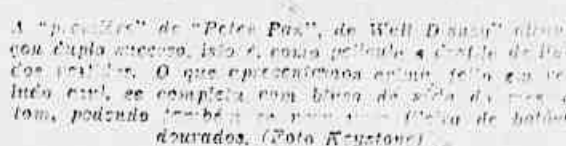 A "première" de "Peter Pan", de Walt Disney"
çou duplo sucesso, isto é, como película e desfile de
dos vestidos. O que apresentamos acima, feito em ve
ludo azul, se completa com blusa de seda do mesmo
tom, podendo também se de botões
dourados. (Foto Keystone)